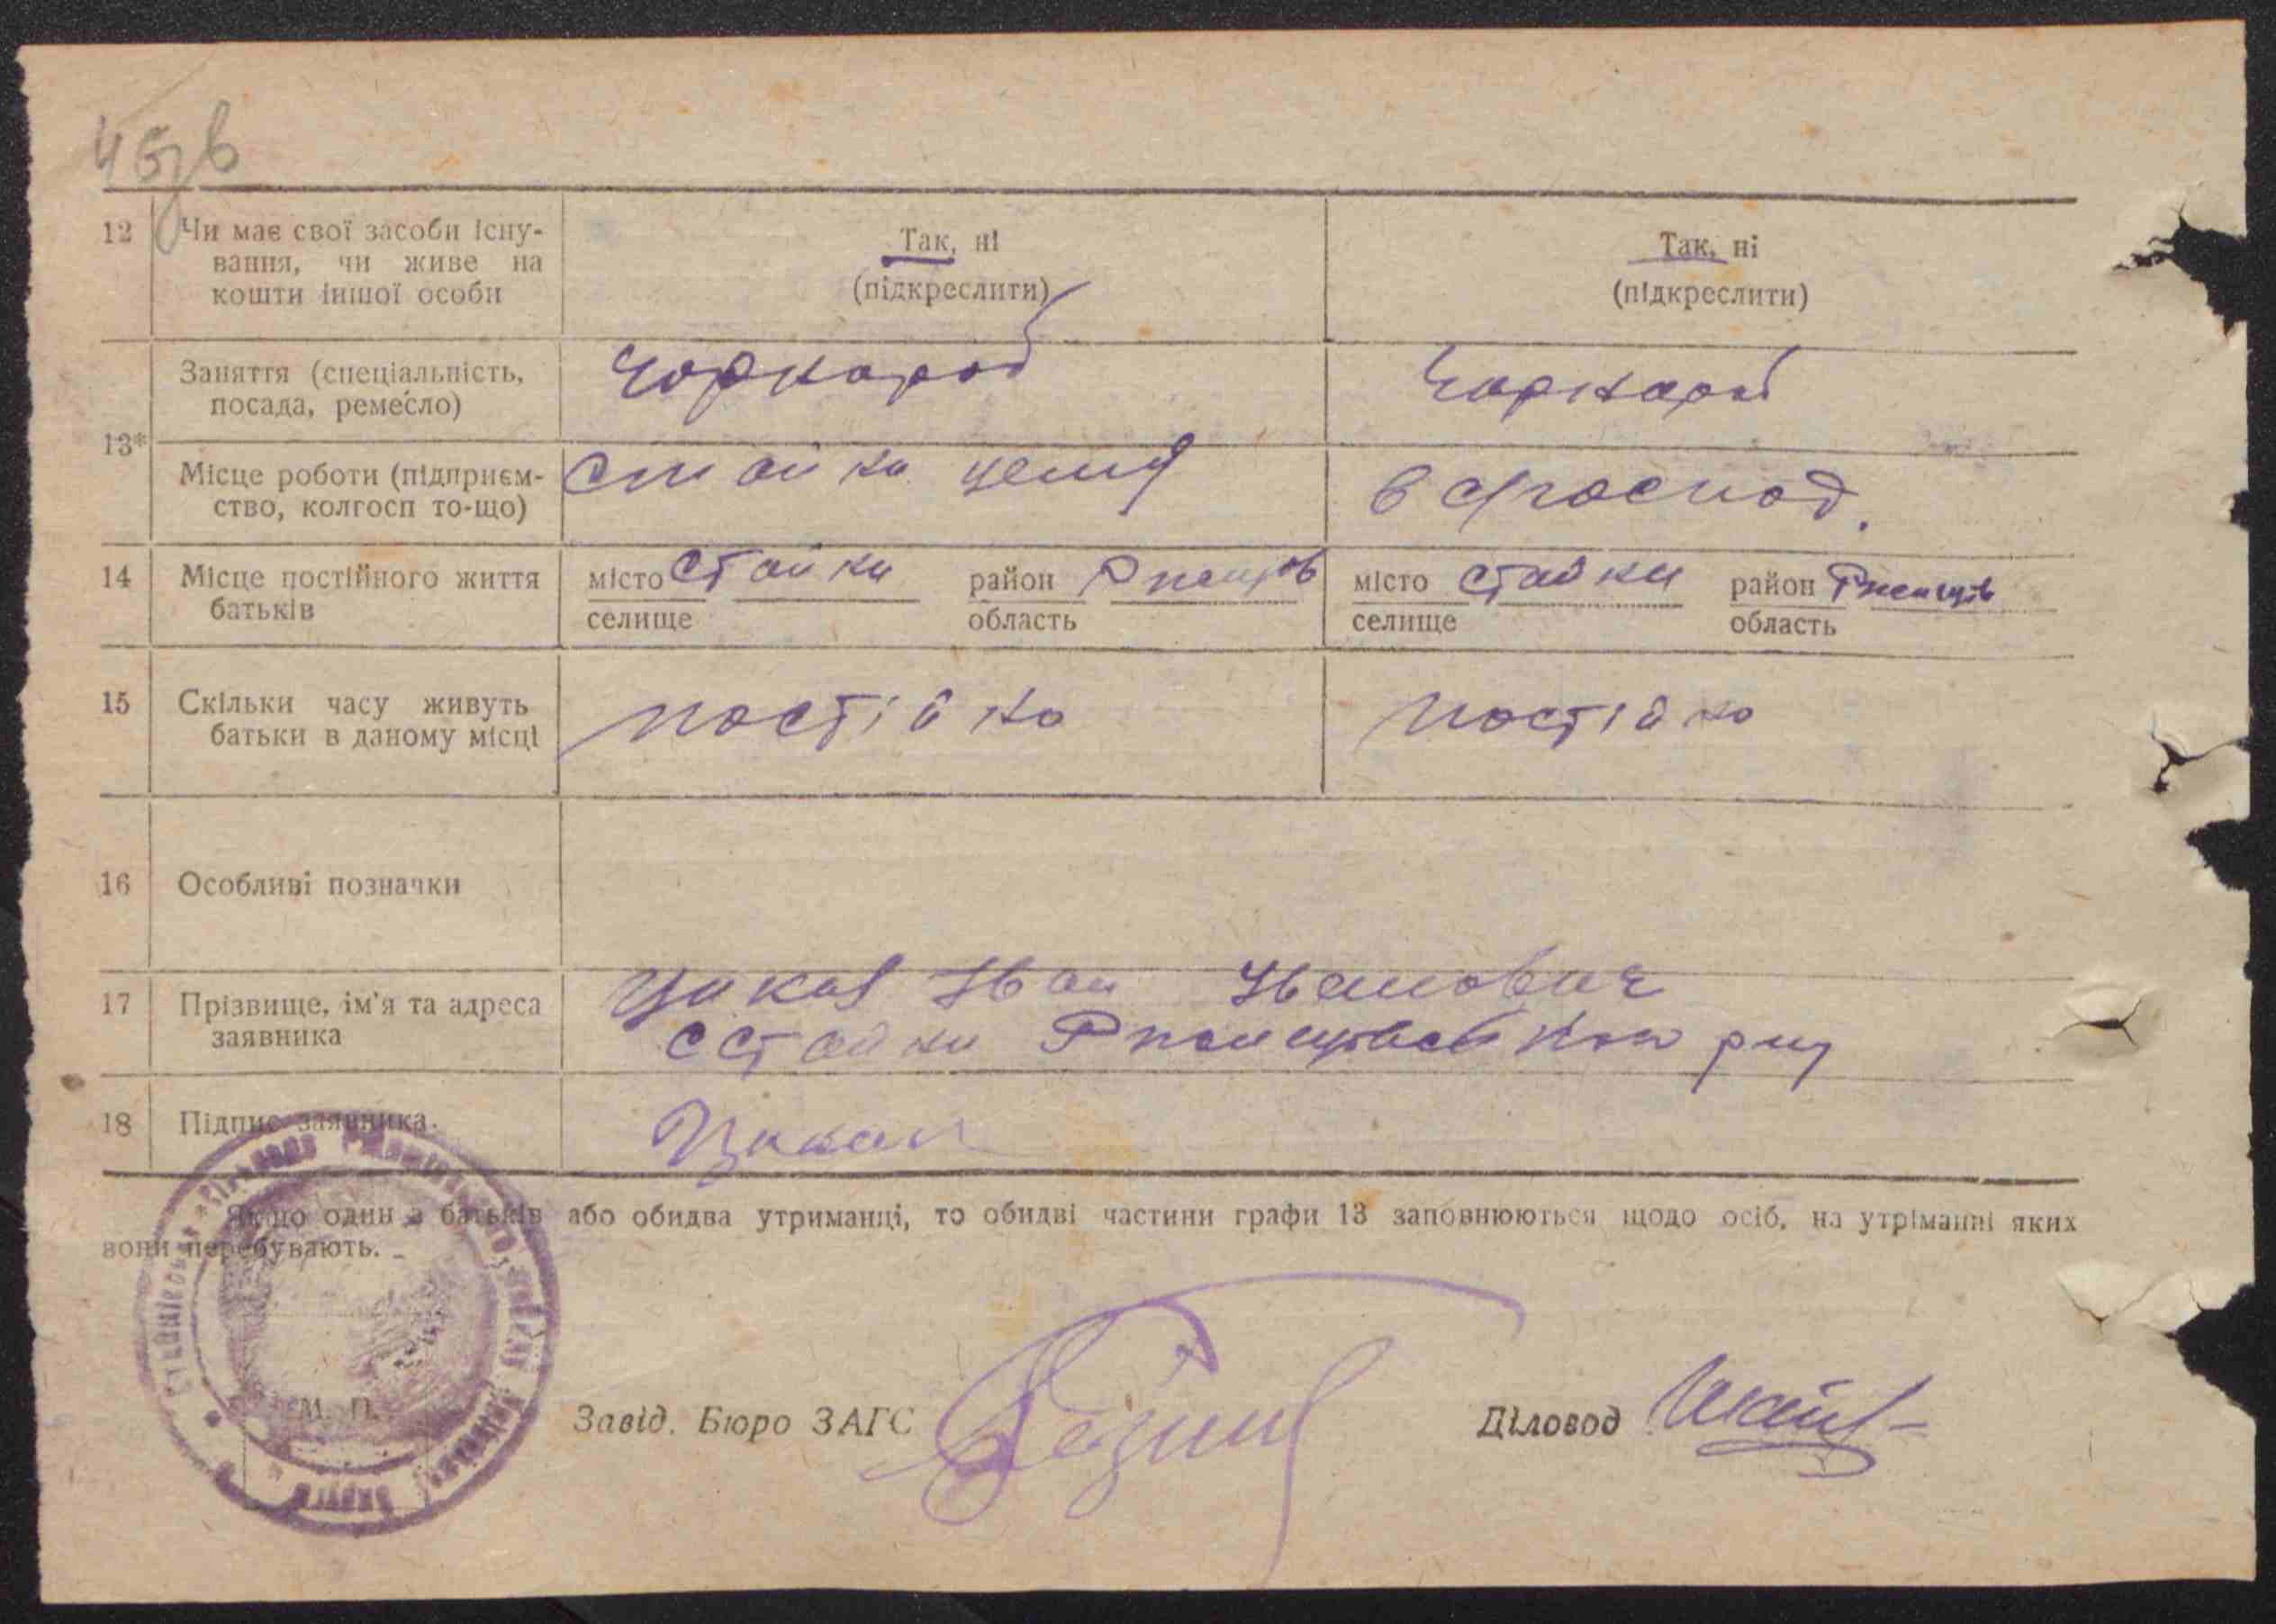 45зв
12 Чи має свої засоби існу- Так, ні Так, ні
вання, чи живе на (підкреслити) (підкреслити)
кошти іншої особи
Заняття (спеціальність, Чорнороб Чорнороб
посада, ремесло)
13*
Місце роботи (підприєм- в господ.
ство, колгосп то-що)
14 Місце постійного життя місто Стайки район Ржищів місто Стайки район Ржищів
батьків селище область селище область
15 Скільки часу живуть постійно постійно
батьки в даному місці
16 Особливі позначки
17 Прізвище, ім'я та адреса Іван Іванович
заявника с Стайки
18 Підпис заявника.
Якщо один з батьків або обидва утриманці, то обидві частини графи 13 заповнюються щодо осіб, на утріманні яких
вони перебувають.
М. П.
Завід. Бюро ЗАГС Діловод